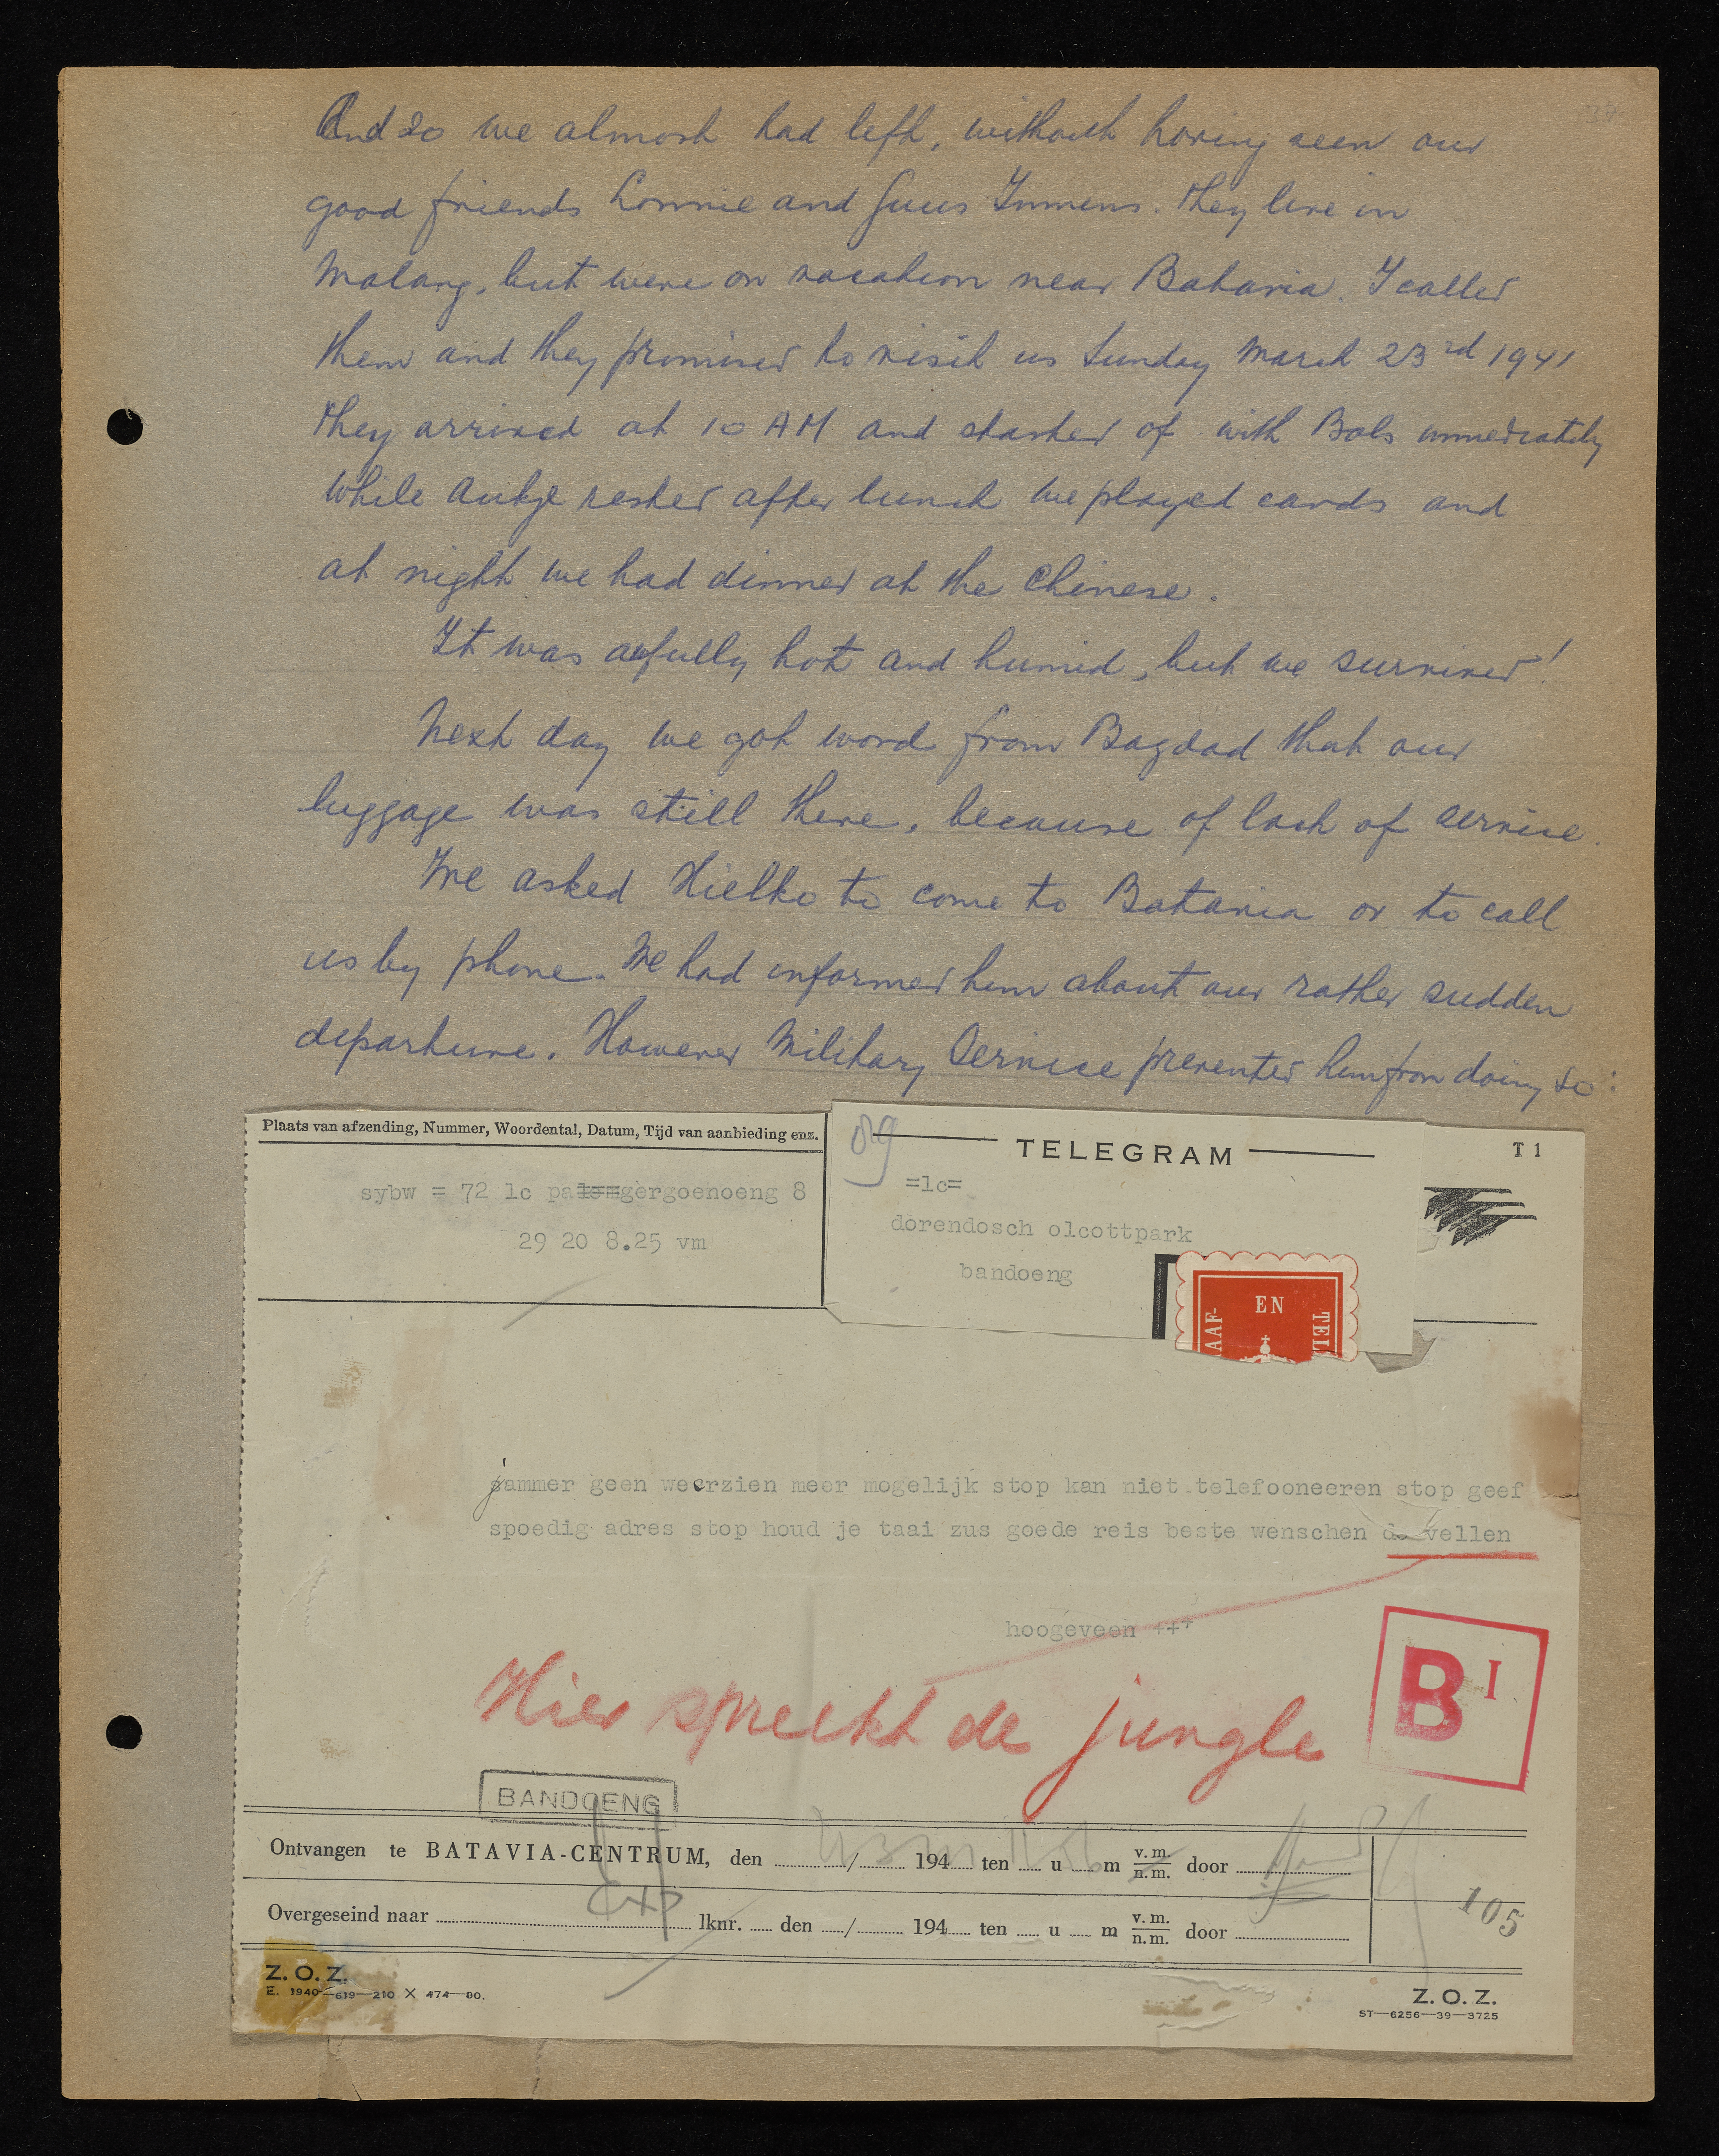 And so we almost had left, without having seen our
good friends Connie and Guus Immens. They live in
Malang, but were on vacation near Batavia. I called
them and they promised to visit us Sunday March 23rd 1941
They arrived at 10 AM and started of with Bols immediately
While Aukje rested after lunch we played cards and
at night we had dinner at the Chinese.
It was awfully hot and humid, but we survived!
Next day we got word from Bagdad that our
luggage was still there, because of lack of service.
We asked Hielko to come to Batavia or to call
us by phone. We had informed him about our rather sudden
departure. However Military Service prevented him from doing so:
Plaats van afzending, Nummer, Woordental, Datum, Tijd van aanbieding enz.
sybw = 72 lc pa gergoenoeng 8
29 20 8.25 vm
TELEGRAM
T 1
=lc=
dorendosch olcottpark
bandoeng
AAF- EN TEL
jammer geen weerzien meer mogelijk stop kan niet telefooneeren stop geef
spoedig adres stop houd je taai zus goede reis beste wenschen de vellen
hoogeveen +++
Hier spreekt de jungle
B I
BANDOENG
Ontvangen te BATAVIA-CENTRUM, den / 194 ten u m v.m. n.m. door
Overgeseind naar lknr. den / 194 ten u m v.m. n.m. door
105
Z. O. Z.
E. 1940—619—210 X 474—80.
Z. O. Z.
ST—6256—39—3725